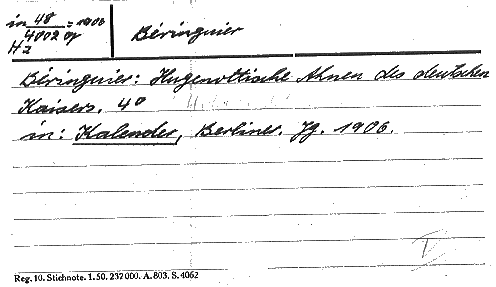 in 48 = 1906
4002 g
Hz
Béringuier
Béringuier: Hugenottische Ahnen des deutschen
Kaisers. 4°
in: Kalender, Berliner. Jg. 1906.
V
Reg. 10. Stichnote. 1. 50. 237 000. A. 803. S. 4062